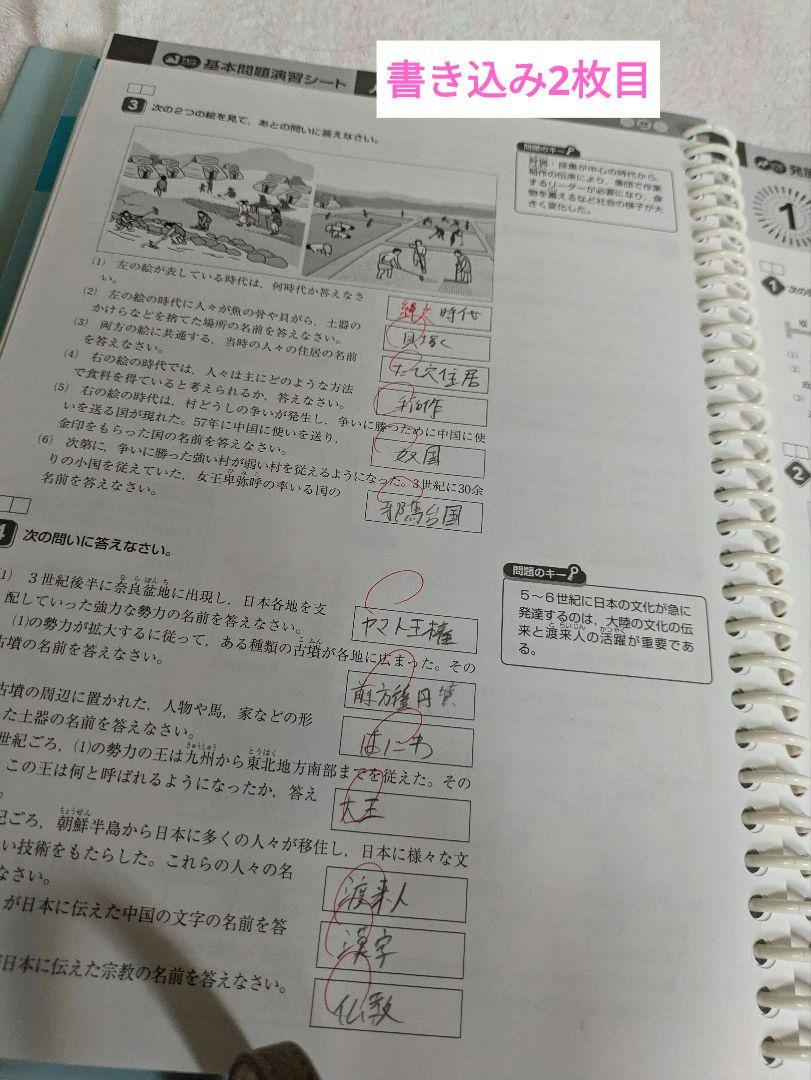 書き込み2枚目
基本問題演習シート
3 次の2つの絵を見て,あとの問いに答えなさい。
問題のキー
狩猟・採集が中心の時代から,
稲作の伝来により,集団で作業
するリーダーが必要になり,食
物を蓄えるなど社会の様子が大
きく変化した。
(1) 左の絵が表している時代は,何時代か答えなさ
い。
縄文時代
(2) 左の絵の時代に人々が魚の骨や貝がら,土器の
かけらなどを捨てた場所の名前を答えなさい。
貝塚
(3) 両方の絵に共通する,当時の人々の住居の名前
を答えなさい。
たて穴住居
(4) 右の絵の時代では,人々は主にどのような方法
で食料を得ていると考えられるか,答えなさい。
稲作
(5) 右の絵の時代は,村どうしの争いが発生し,争いに勝つために中国に使
いを送る国が現れた。57年に中国に使いを送り,
金印をもらった国の名前を答えなさい。
奴国
(6) 次第に,争いに勝った強い村が弱い村を従えるようになった。3世紀に30余
りの小国を従えていた,女王卑弥呼の率いる国の
名前を答えなさい。
邪馬台国
4 次の問いに答えなさい。
問題のキー
5~6世紀に日本の文化が急に
発達するのは,大陸の文化の伝
来と渡来人の活躍が重要であ
る。
1) 3世紀後半に奈良盆地に出現し,日本各地を支
配していった強力な勢力の名前を答えなさい。
ヤマト王権
(1)の勢力が拡大するに従って,ある種類の古墳が各地に広まった。その
古墳の名前を答えなさい。
前方後円墳
古墳の周辺に置かれた,人物や馬,家などの形
た土器の名前を答えなさい。
はにわ
世紀ごろ,(1)の勢力の王は九州から東北地方南部までを従えた。その
この王は何と呼ばれるようになったか,答え
大王
紀ごろ,朝鮮半島から日本に多くの人々が移住し,日本に様々な文
い技術をもたらした。これらの人々の名
なさい。
渡来人
が日本に伝えた中国の文字の名前を答
漢字
が日本に伝えた宗教の名前を答えなさい。
仏教
発展
1
1 次の
(1)
(2)
(3)
2